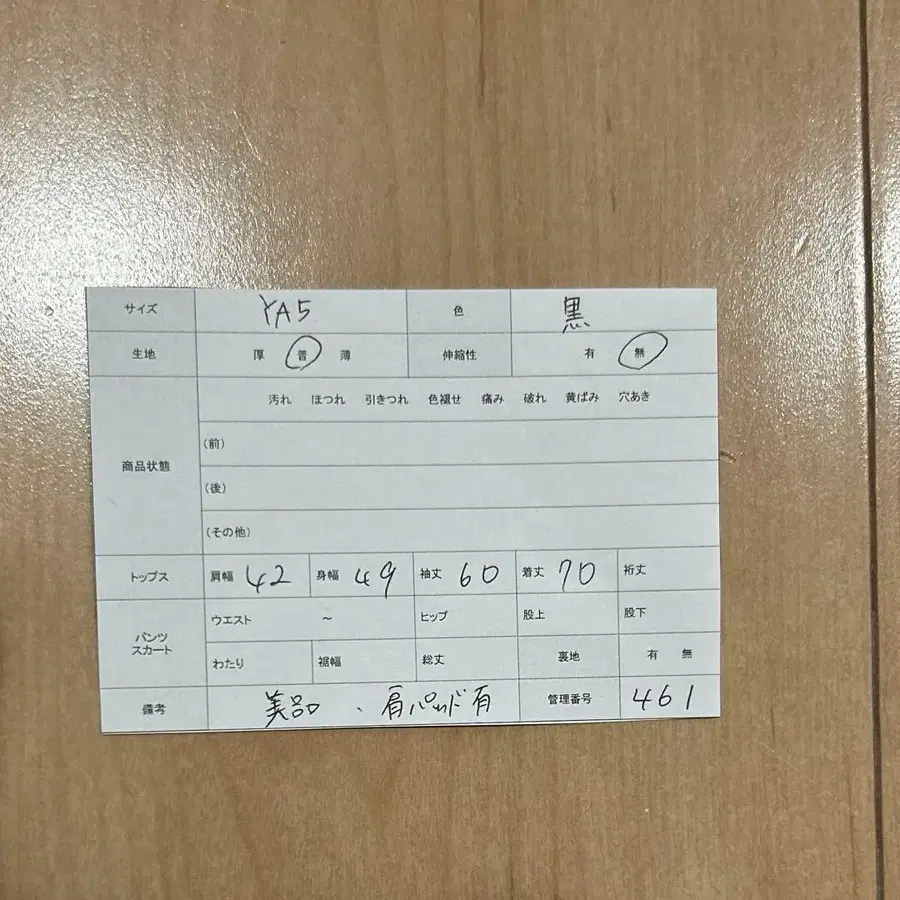 サイズ YA5 色 黒
生地 厚 普 薄 伸縮性 有 無
汚れ ほつれ 引きつれ 色褪せ 痛み 破れ 黄ばみ 穴あき
商品状態
(前)
(後)
(その他)
トップス 肩幅 42 身幅 49 袖丈 60 着丈 70 裄丈
パンツ
スカート
ウエスト ～ ヒップ 股上 股下
わたり 裾幅 総丈 裏地 有 無
備考 美品、肩パッド有 管理番号 461